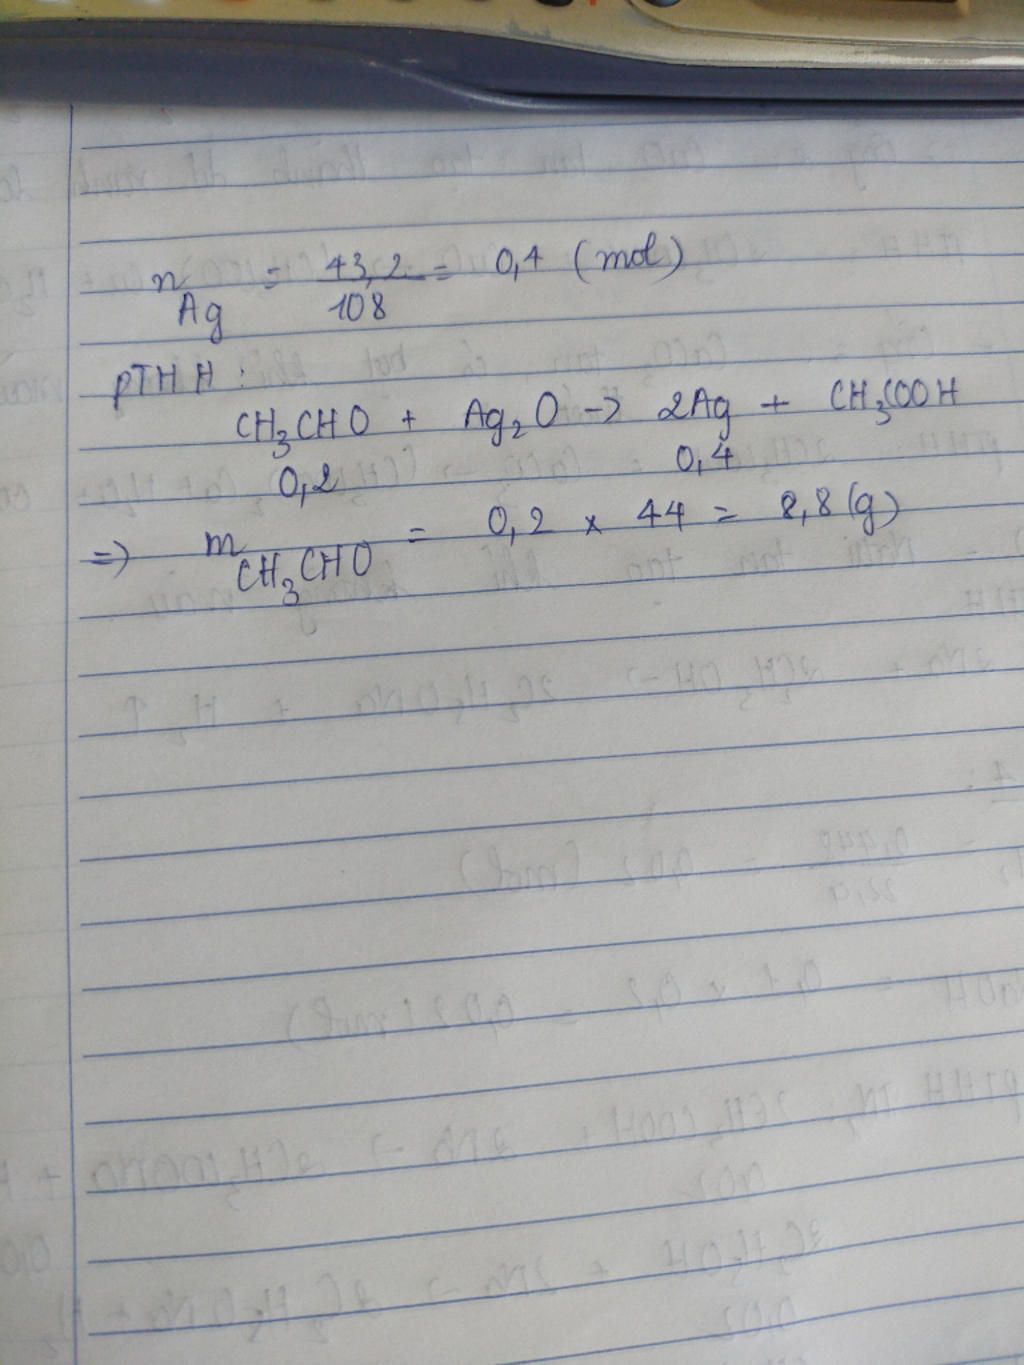 n Ag = 43,2 / 108 = 0,4 (mol)
PTHH :
CH₃CHO + Ag₂O → 2Ag + CH₃COOH
0,2 0,4
=> m CH₃CHO = 0,2 × 44 = 8,8 (g)